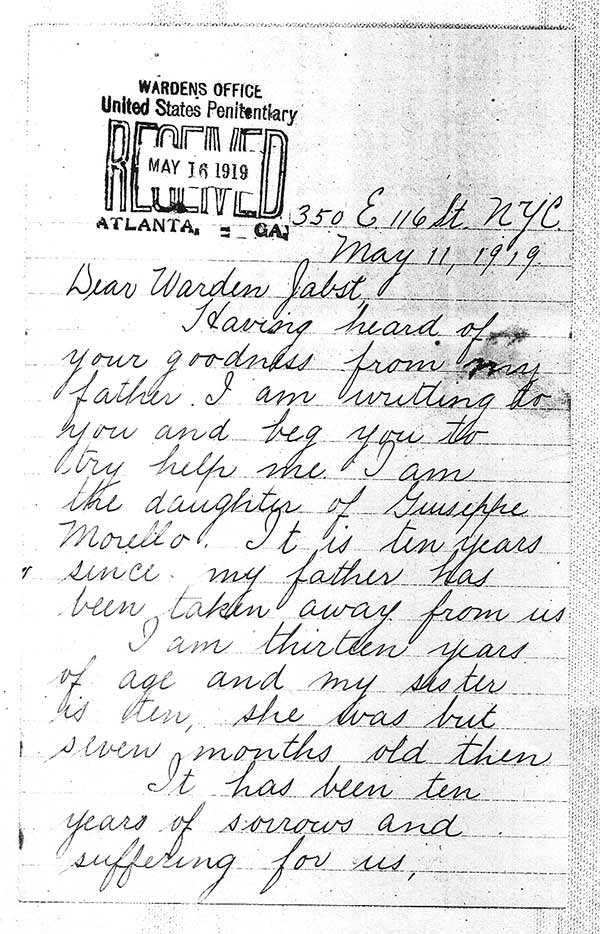 WARDENS OFFICE
United States Penitentiary
RECEIVED
MAY 16 1919
ATLANTA, GA.
350 E 116 St. NYC
May 11, 1919.
Dear Warden Jabst,
Having heard of
your goodness from my
father. I am writting to
you and beg you to
try help me. I am
the daughter of Giuseppe
Morello. It is ten years
since my father has
been taken away from us
I am thirteen years
of age and my sister
is ten, she was but
seven months old then
It has been ten
years of sorrows and
suffering for us,